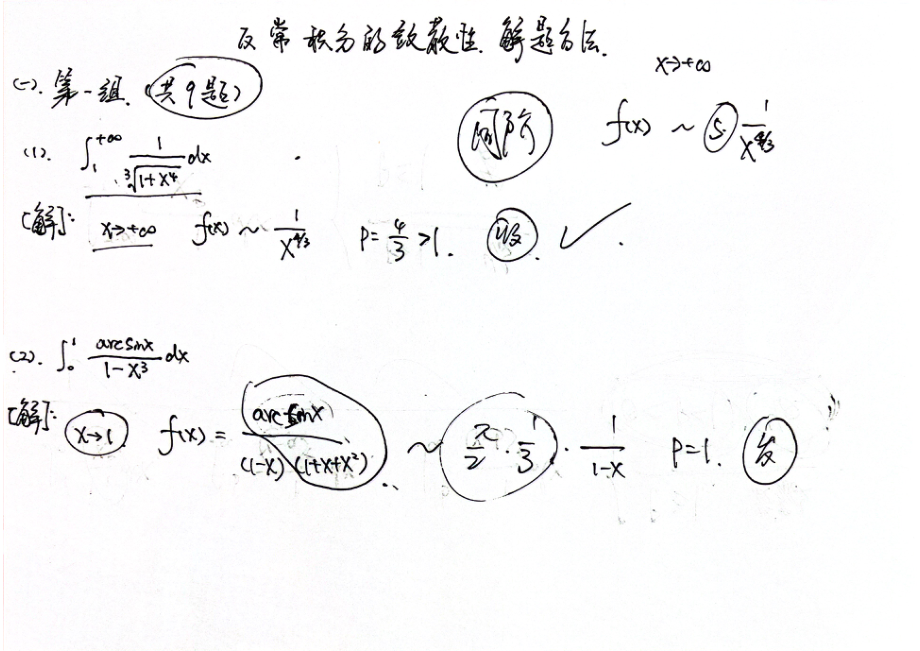 反常积分的敛散性.解题方法.
(一).第一组.(共9题)
x→+∞
同阶 f(x) ~ 5·1/x^(4/3)
(1). ∫₁^(+∞) 1/∛(1+x⁴) dx
[解]: x→+∞ f(x) ~ 1/x^(4/3) p=4/3>1. 收. ✓.
(2). ∫₀¹ arcsinx/(1-x³) dx
[解]: x→1 f(x) = arcsinx/((1-x)(1+x+x²)) ~ π/2·1/3·1/(1-x) p=1. 发